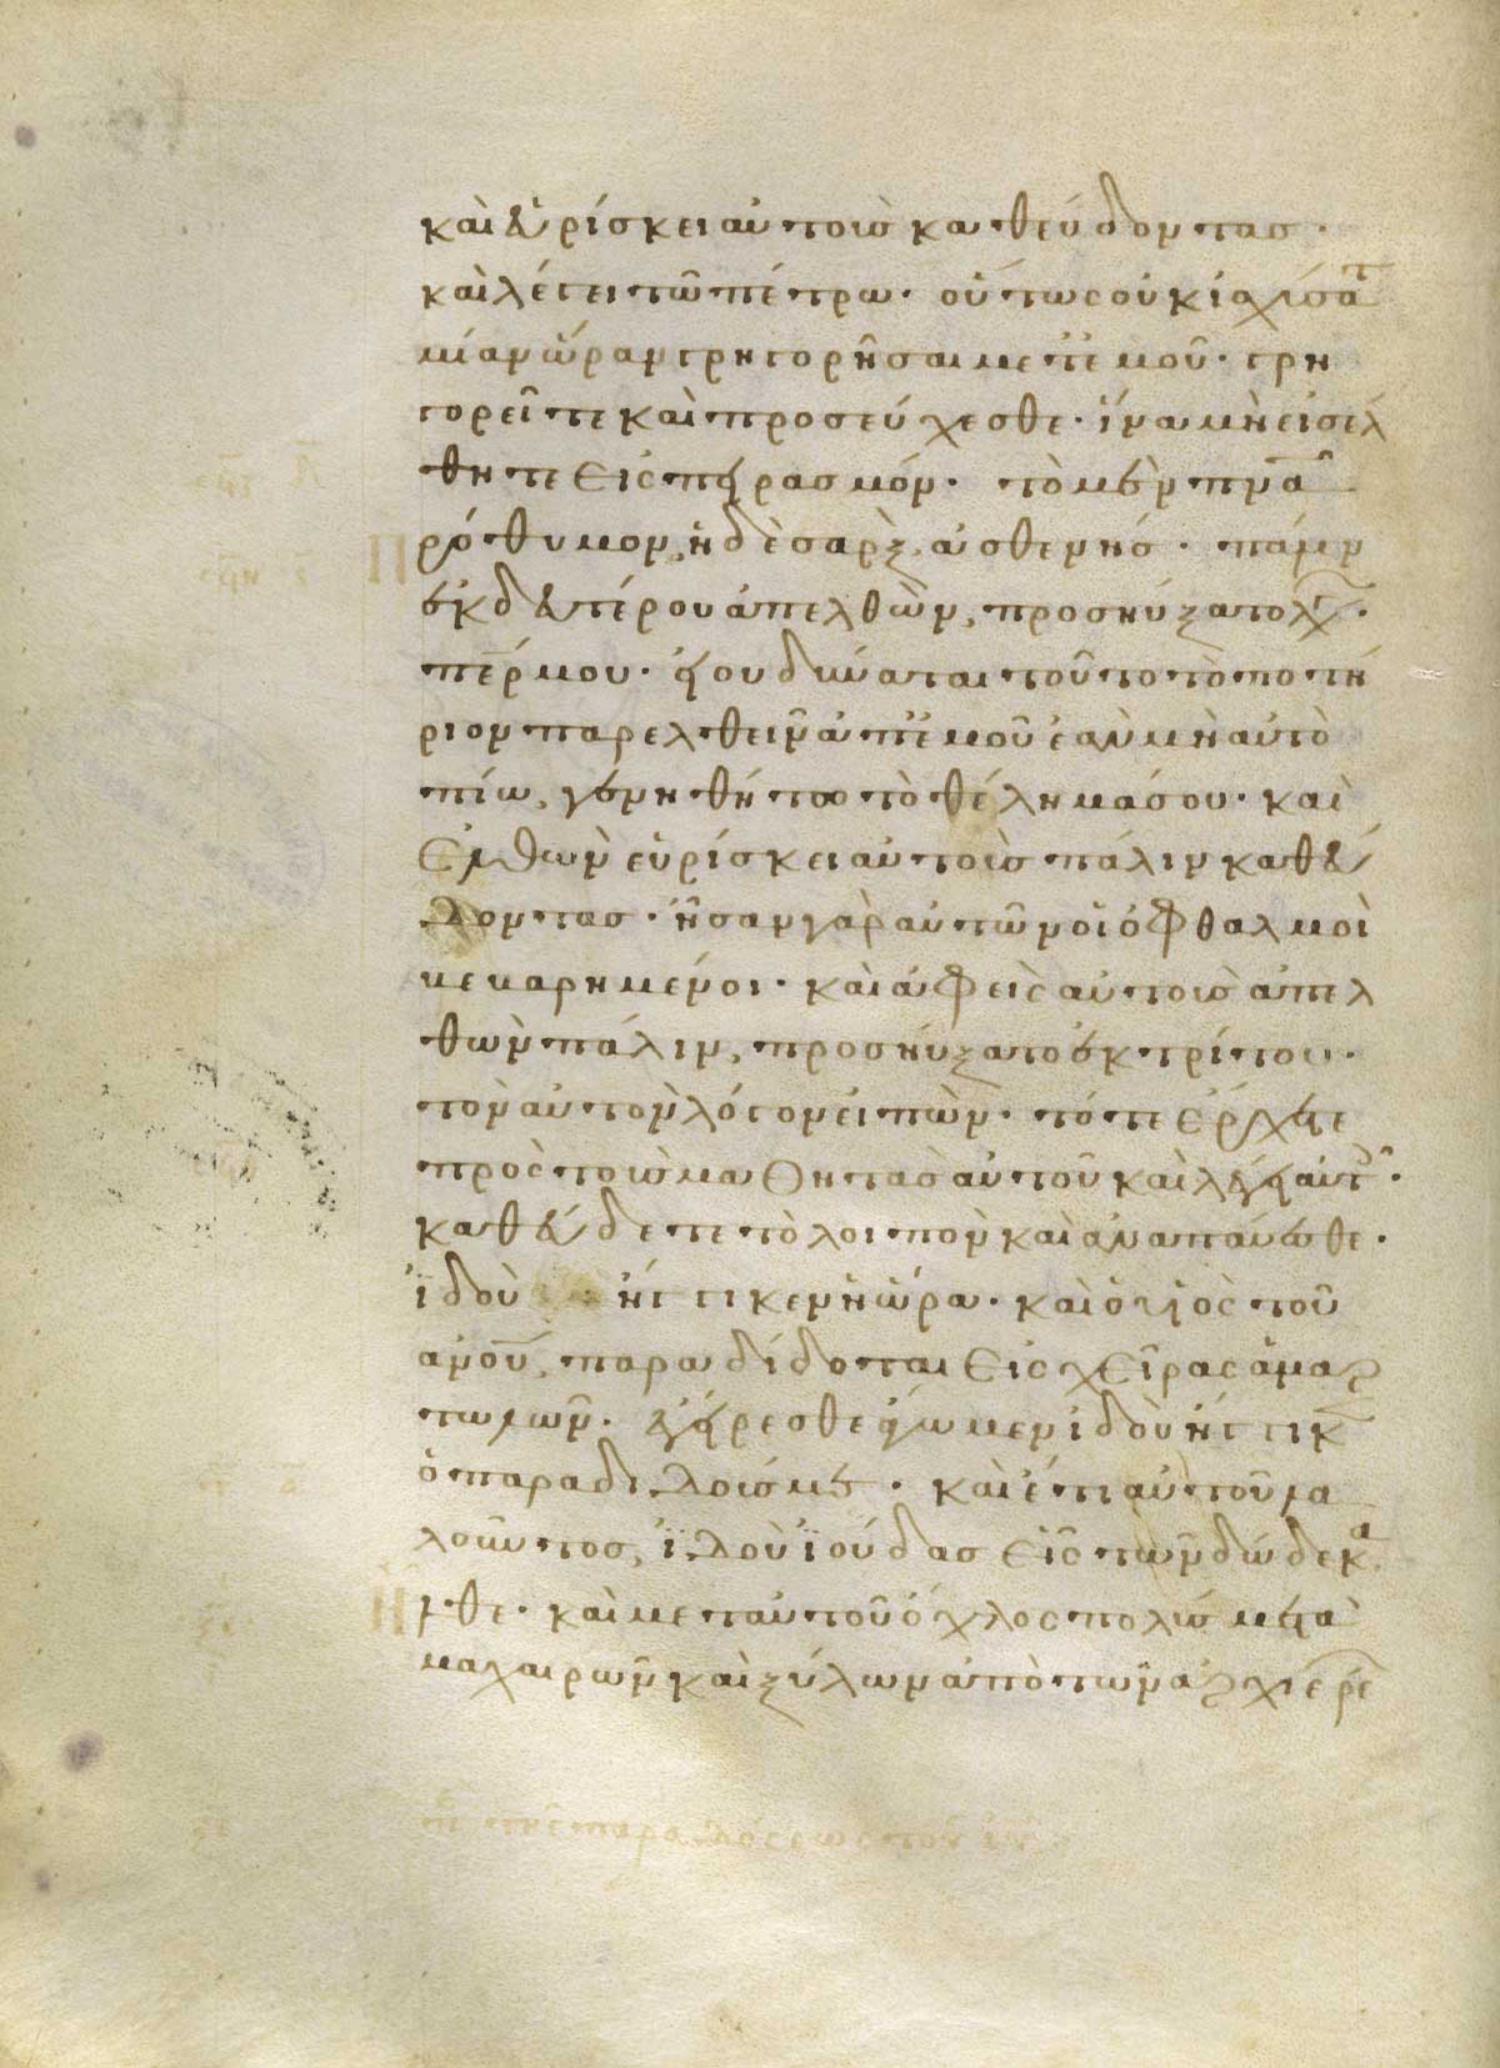 καὶ εὑρίσκει αὐτοὺς καθεύδοντας·
καὶ λέγει τῶ πέτρω· οὕτως οὐκ ἰσχύσατ
μίαν ὥραν γρηγορῆσαι μετ' ἐμοῦ· γρη
γορεῖτε καὶ προσεύχεσθε· ἵνα μὴ εἰσέλ
θητε εἰς πειρασμόν· τὸ μὲν πνα
πρόθυμον, ἡ δὲ σὰρξ ἀσθενής· πάλιν
ἐκ δευτέρου ἀπελθὼν, προσηύξατο λγ·
περ μου· εἰ οὐ δύναται τοῦτο τὸ ποτή
ριον παρελθεῖν ἀπ' ἐμοῦ ἐὰν μὴ αὐτὸ
πίω, γενηθήτω τὸ θέλημά σου· καὶ
ἐλθὼν εὑρίσκει αὐτοὺς πάλιν καθεύ
δοντας· ἦσαν γὰρ αὐτῶν οἱ ὀφθαλμοὶ
βεβαρημένοι· καὶ ἀφεὶς αὐτοὺς ἀπελ
θὼν πάλιν, προσηύξατο ἐκ τρίτου·
τὸν αὐτὸν λόγον εἰπών· τότε ἔρχεται
πρὸς τοὺς μαθητὰς αὐτοῦ καὶ λέγει αὐτ·
καθεύδετε τὸ λοιπὸν καὶ ἀναπαύεσθε·
ἰδοὺ ἤγγικεν ἡ ὥρα· καὶ ὁ υἱὸς τοῦ
ανου, παραδίδοται εἰς χεῖρας ἁμαρ
τωλῶν· ἐγείρεσθε ἄγωμεν ἰδοὺ ἤγγικ
ὁ παραδιδούς με· καὶ ἔτι αὐτοῦ λα
λοῦντος, ἰδοὺ ἰούδας εἷς τῶν δώδεκα
ἦλθε· καὶ μετ' αὐτοῦ ὄχλος πολὺς μετὰ
μαχαιρῶν καὶ ξύλων ἀπὸ τῶν ἀρχιερέ